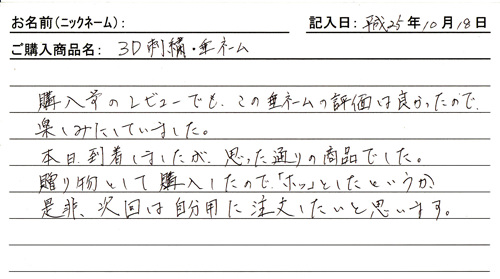 お名前(ニックネーム): 記入日: 平成25年10月18日
ご購入商品名: 3D刺繍・垂ネーム
購入者のレビューでも、この垂ネームの評価は良かったので、
楽しみにしていました。
本日到着しましたが、思った通りの商品でした。
贈り物として購入したので、「ホッ」としたというか、
是非、次回は自分用に注文したいと思います。